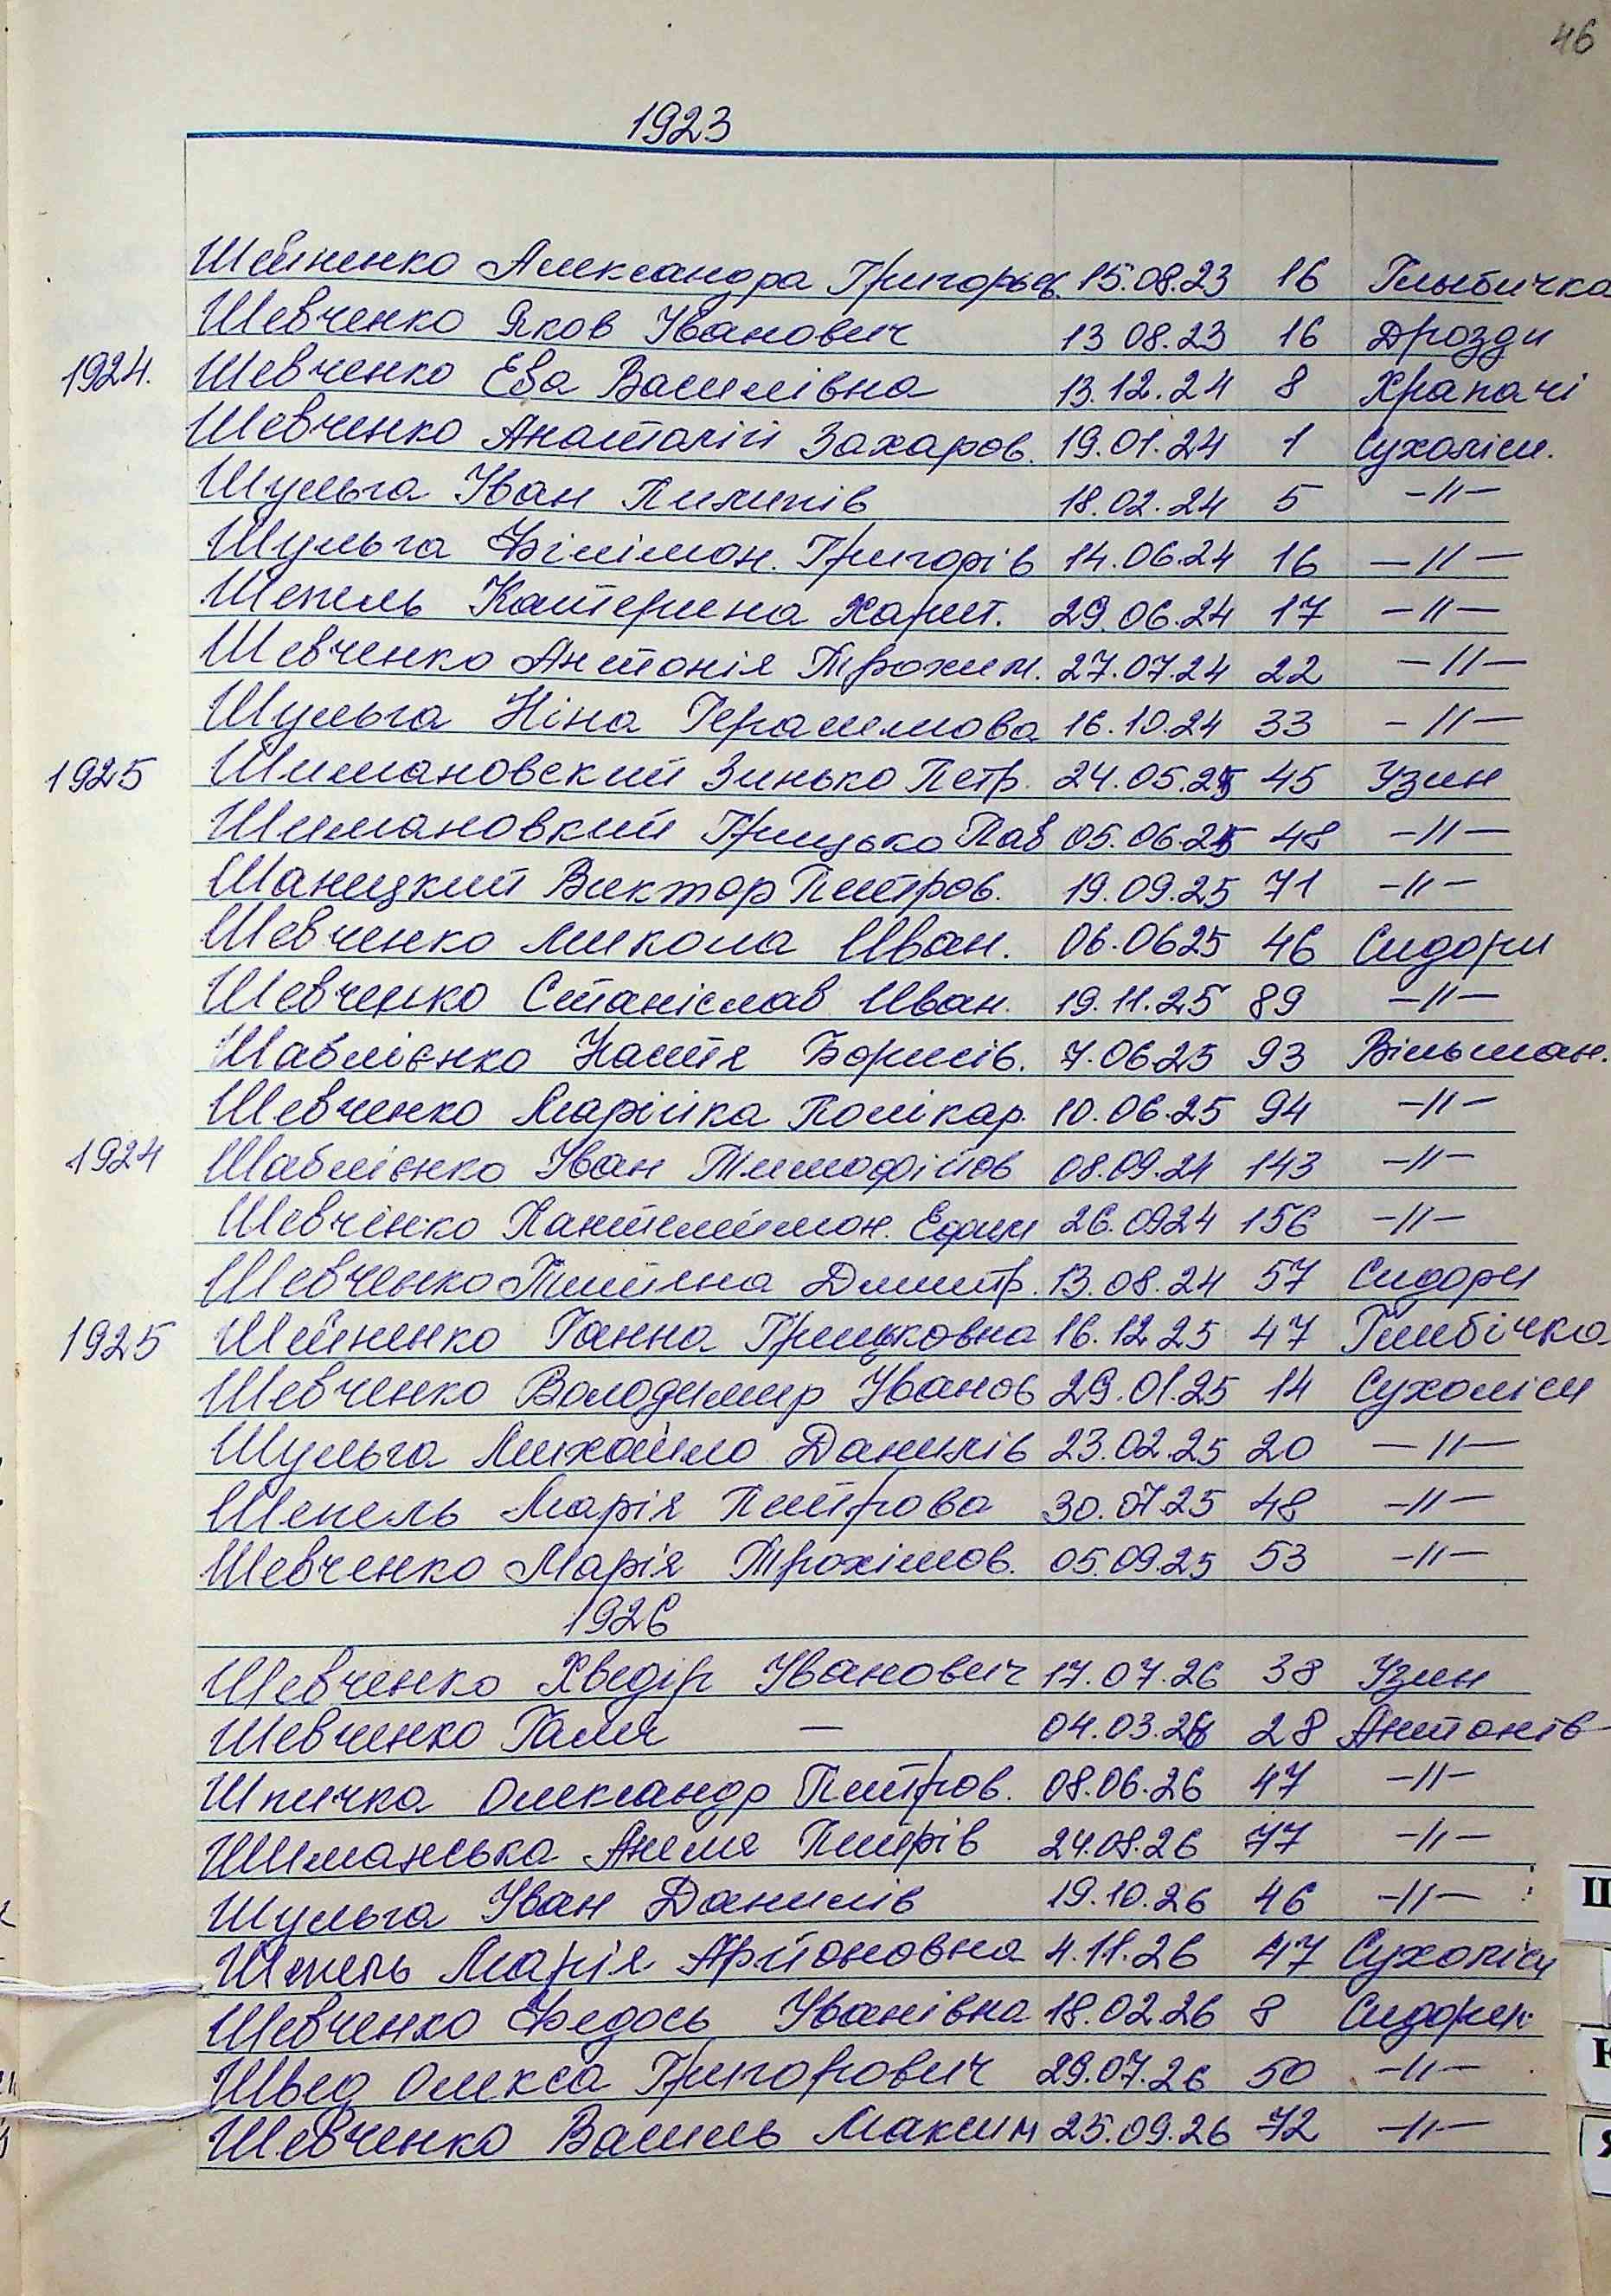 46
1923
Шейненко Александра Григорьев. 15.08.23 16 Глыбичка
Шевченко Яков Іванович 13 08.23 16 Дрозди
1924. Шевченко Ева Василівна 13.12.24 8 Храпачі
Шевченко Анаталій Захаров. 19.01.24 1 Сухоліси.
Шульга Іван Пилипів 18.02.24 5 -//-
Шульга Філімон. Григорів 14.06.24 16 -//-
Шепель Катерина Харит. 29.06.24 17 -//-
Шевченко Антонія Трохим. 27.07.24 22 -//-
Шульга Ніна Герасимова 16.10.24 33 -//-
1925 Шимановский Зинько Петр. 24.05.25 45 Узин
Шимановкий Грицько Пав 05.06.25 48 -//-
Шаницкий Виктор Питров. 19.09.25 71 -//-
Шевченко Микола Иван. 06.0625 46 Сидори
Шевченко Станіслав Иван. 19.11.25 89 -//-
Шаблієнко Настя Борисів. 7.0625 93 Вільшан.
Шевченко Марійка Полікар. 10.06.25 94 -//-
1924 Шаблієнко Іван Тимофійов 08.09.24 143 -//-
Шевчінко Пантилимон. Ефим 26.0924 156 -//-
Шевченко Дмитр. 13.08.24 57 Сидори
1925 Шейненко Ганна Грицковна 16.12.25 47 Глибічка
Шевченко Володимир Іванов 29.01.25 14 Сухоліси
Шульга Михайло Данилів 23.02.25 20 -//-
Шепель Марія Питрова 30.07.25 48 -//-
Шевченко Марія Трохімов. 05.09.25 53 -//-
1926
Шевченко Хведір Іванович 17.07.26 38 Узин
Шевченко Галя — 04.03.26 28 Антонів
Шпичка Олександр Питров. 08.06.26 47 -//-
Шиманська Анеля Питрів 24.08.26 77 -//-
Шульга Іван Данилів 19.10.26 46 -//-
Шепель Марія 4.11.26 47 Сухоліси
Шевченко Федось Іванівна 18.02.26 8 Сидори
Швед Олекса Григорович 29.07.26 50 -//-
Шевченко Василь Максим 25.09.26 72 -//-